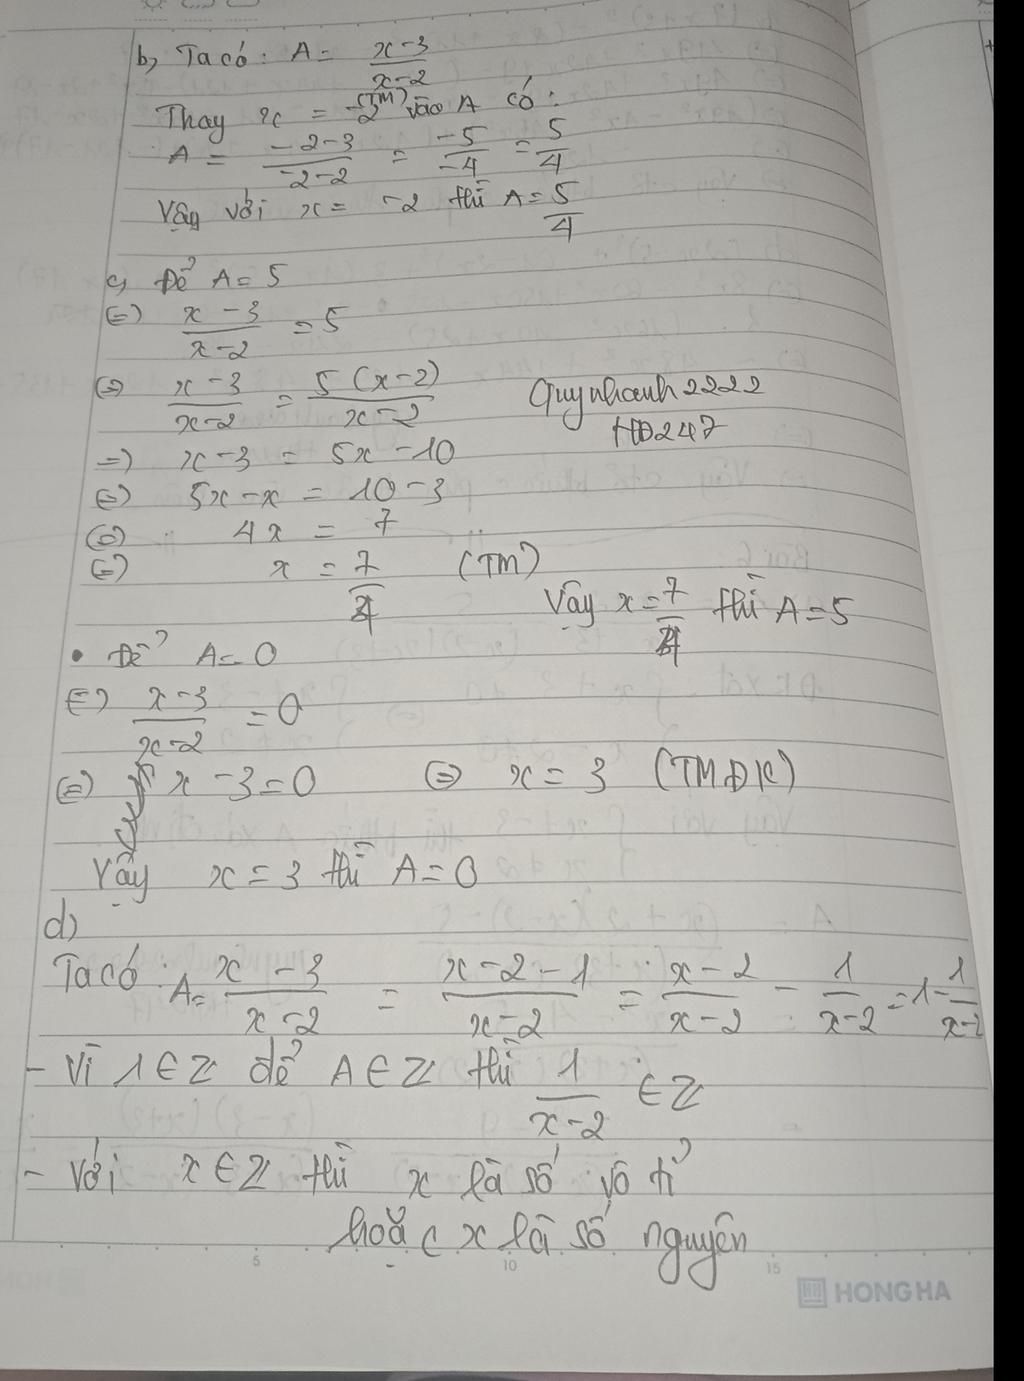 b, Ta có: A = x-3/x-2
Thay x = -2 (TM) vào A có:
A = -2-3/-2-2 = -5/-4 = 5/4
Vậy với x = -2 thì A = 5/4
c, Để A = 5
(=) x-3/x-2 = 5
(=) x-3/x-2 = 5(x-2)/x-2
Quynhanh2222
HD247
=) x-3 = 5x-10
(=) 5x-x = 10-3
(=) 4x = 7
(=) x = 7/4 (TM)
Vậy x = 7/4 thì A = 5
• Để A = 0
(=) x-3/x-2 = 0
(=) x-3 = 0 (=) x = 3 (TMĐK)
Vậy x = 3 thì A = 0
d)
Ta có: A = x-3/x-2 = x-2-1/x-2 = x-2/x-2 - 1/x-2 = 1-1/x-2
- Vì 1 ∈ Z để A ∈ Z thì 1/x-2 ∈ Z
- Với x ∈ Z thì x là số vô tỉ
hoặc x là số nguyên
5 10 15
HONG HA